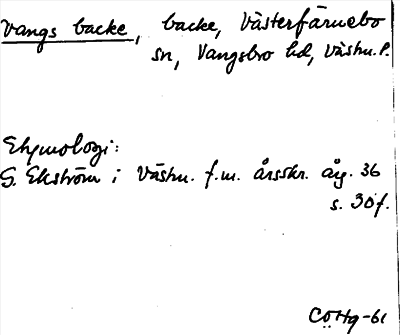 Vangs backe, backe, Västerfärnebo
sn, Vangsbro hd, Västm. l.
Etymologi:
G. Ekström i Västm. f.m. årsskr. åg. 36
s. 30 f.
CÖHg-61